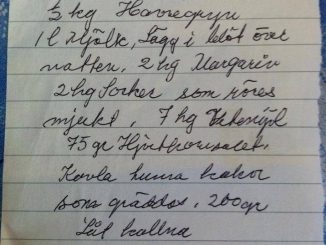 ½ kg Havregryn
1 l Mjölk, Lägg i blöt över
natten, 2 hg Margarin
2 hg Socker som röres
mjukt, 7 hg Vetemjöl
75 gr Hjorthornssalt.
Kavla tunna kakor
som gräddas, 200 gr
Låt kallna